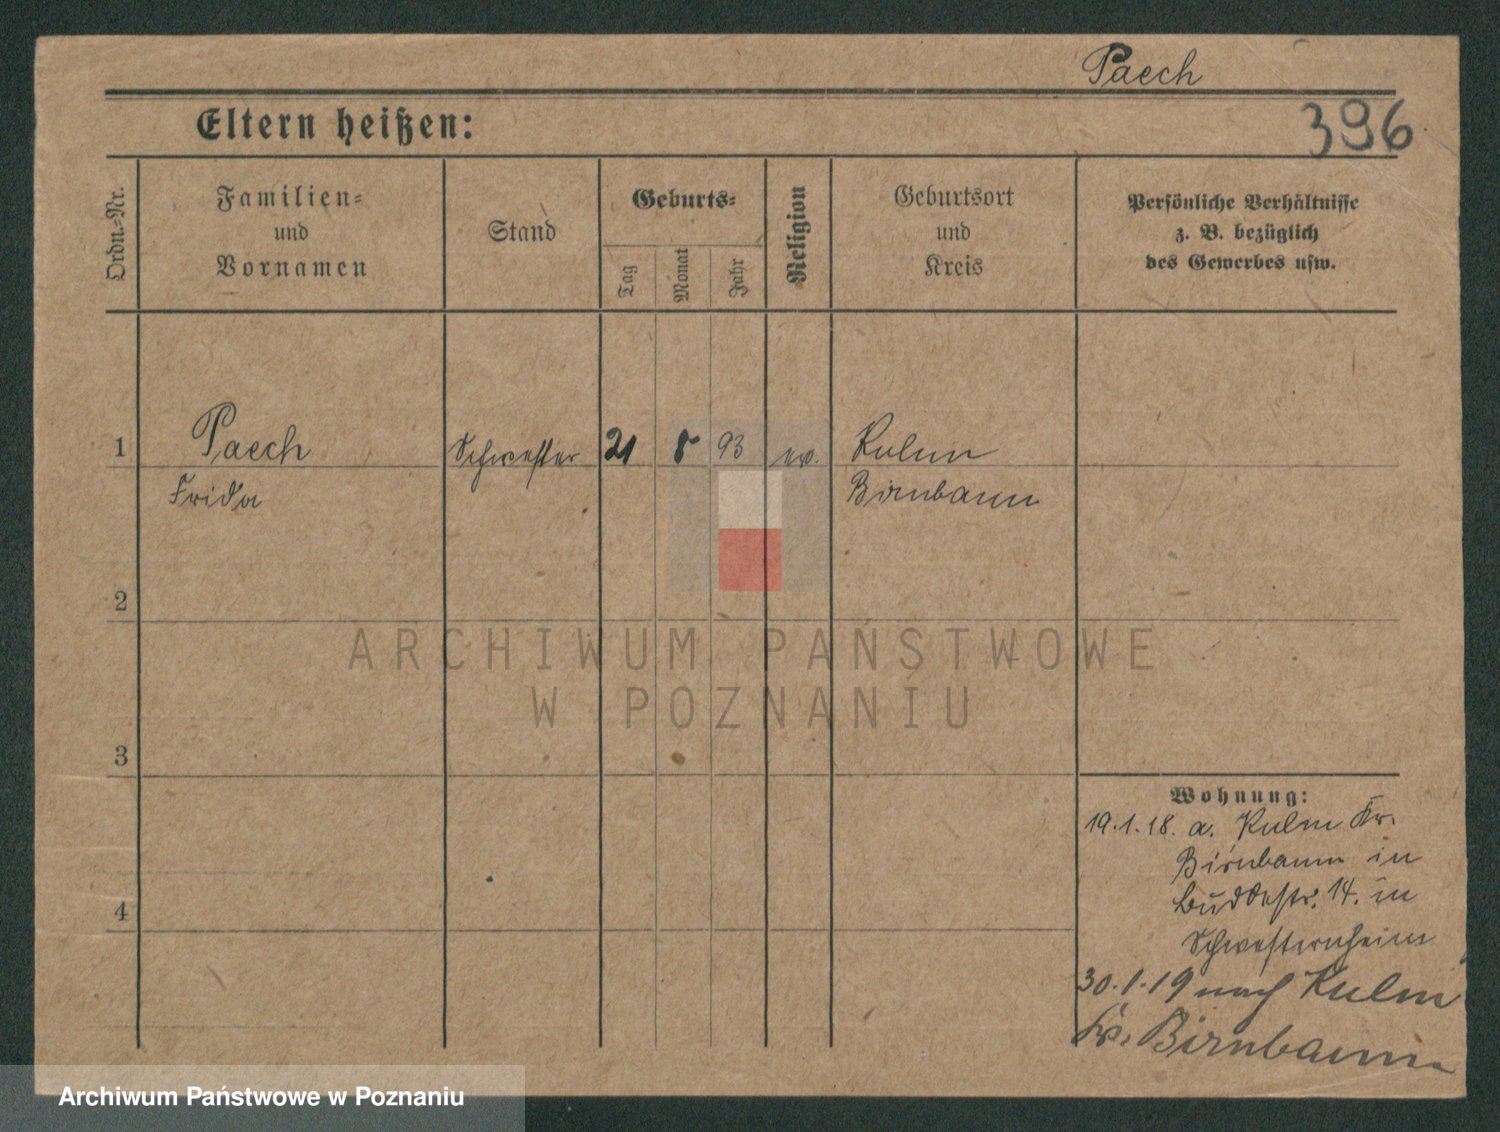 Paech
396
Eltern heißen:
Ordn.-Nr.
Familien-
und
Vornamen
Stand
Geburts-
Tag
Monat
Jahr
Religion
Geburtsort
und
Kreis
Persönliche Verhältnisse
z. B. bezüglich
des Gewerbes usw.
1 Paech Schwester 21 8 93 ev. Kulm
Frida Birnbaum
2
3
4
Wohnung:
19.1.18. a. Kulm Kr.
Birnbaum in
Buddestr. 14. in
Schwesternheim
30.1.19 nach Kulm
Kr. Birnbaum
ARCHIWUM PAŃSTWOWE
W POZNANIU
Archiwum Państwowe w Poznaniu